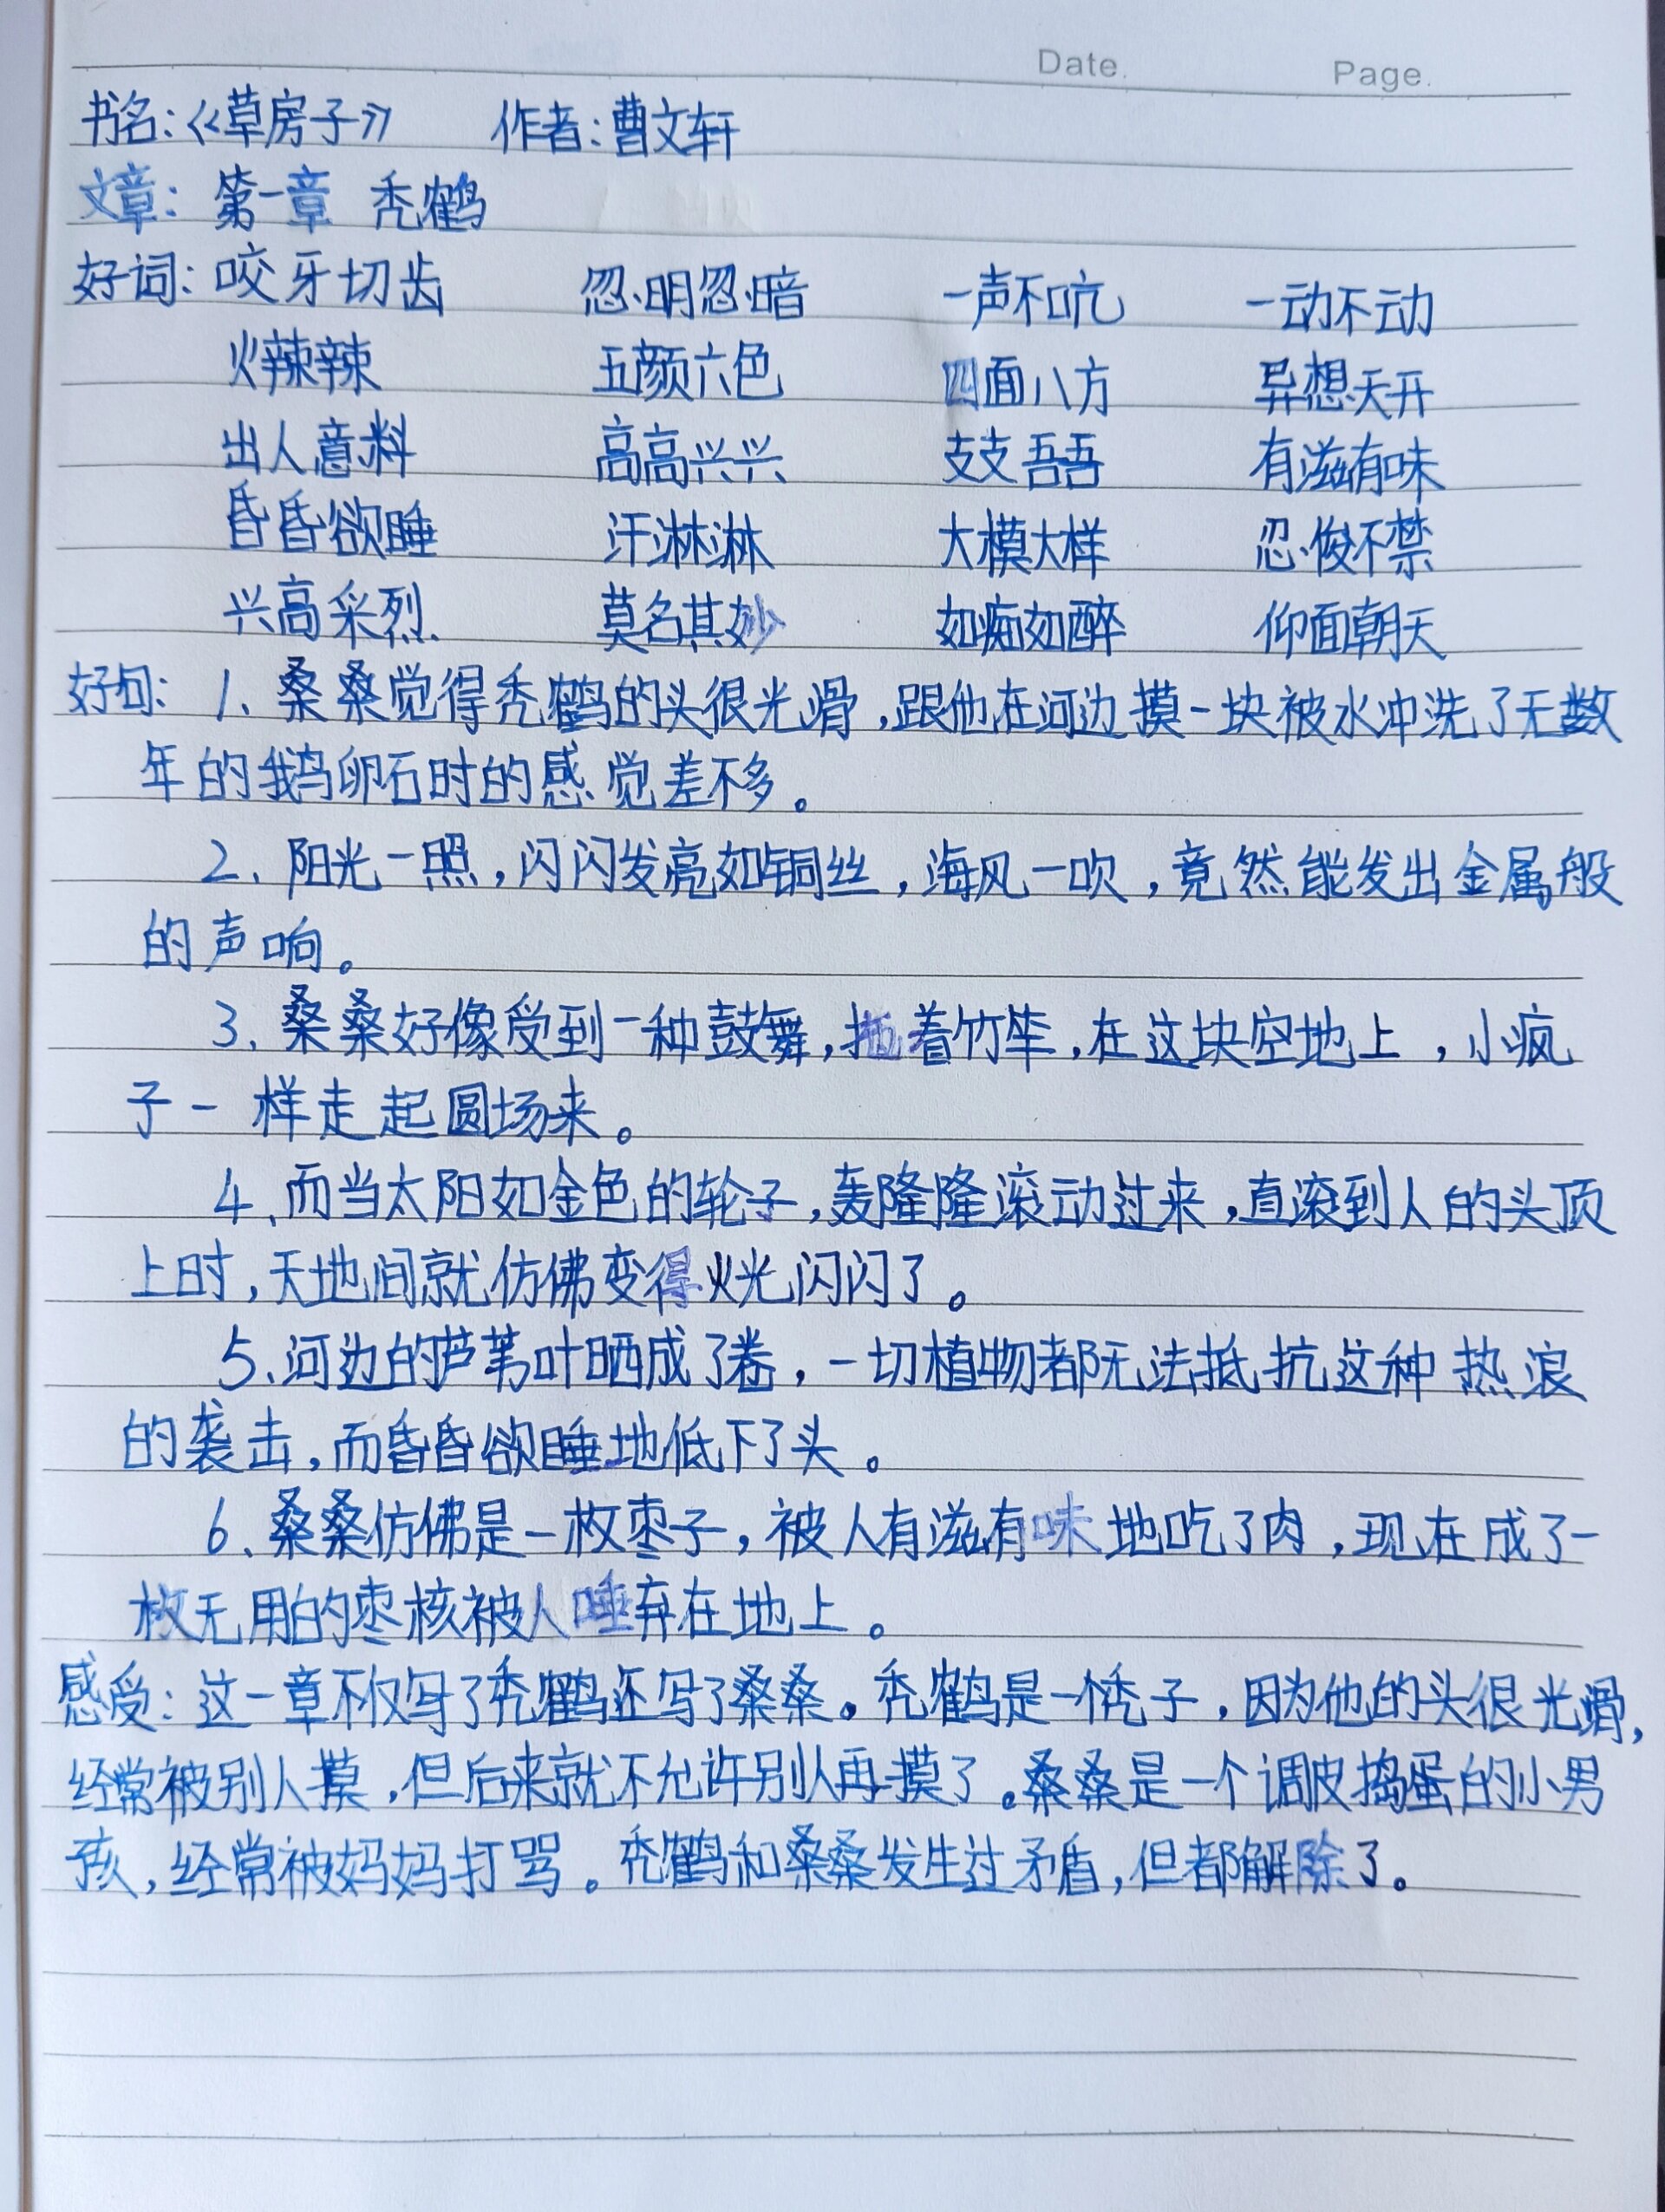 Date. Page.
书名:《草房子》 作者:曹文轩
文章: 第一章 秃鹤
好词: 咬牙切齿 忽明忽暗 一声不吭 一动不动
火辣辣 五颜六色 四面八方 异想天开
出人意料 高高兴兴 支支吾吾 有滋有味
昏昏欲睡 汗淋淋 大模大样 忍俊不禁
兴高采烈. 莫名其妙 如痴如醉 仰面朝天
好句: 1、桑桑觉得秃鹤的头很光滑,跟他在河边摸一块被水冲洗了无数
年的鹅卵石时的感觉差不多。
2、阳光一照,闪闪发亮如铜丝,海风一吹,竟然能发出金属般
的声响。
3、桑桑好像受到一种鼓舞,拖着竹竿,在这块空地上,小疯
子一样走起圆场来。
4、而当太阳如金色的轮子,轰隆隆滚动过来,直滚到人的头顶
上时,天地间就仿佛变得火光闪闪了。
5、河边的芦苇叶晒成了卷,一切植物都无法抵抗这种热浪
的袭击,而昏昏欲睡地低下了头。
6、桑桑仿佛是一枚枣子,被人有滋有味地吃了肉,现在成了一
枚无用的枣核被人唾弃在地上。
感受:这一章不仅写了秃鹤还写了桑桑。秃鹤是一个秃子,因为他的头很光滑,
经常被别人摸,但后来就不允许别人再摸了。桑桑是一个调皮捣蛋的小男
孩,经常被妈妈打骂。秃鹤和桑桑发生过矛盾,但都解除了。